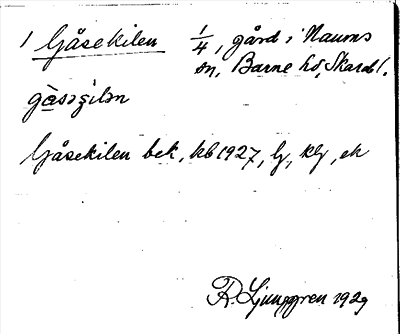 1 Gåsekilen 1/4, gård i Naums
sn, Barne hd, Skarabl.
gàsəçilən
Gåsekilen bek, kb 1927, lj, klj, ek
R. Ljunggren 1929